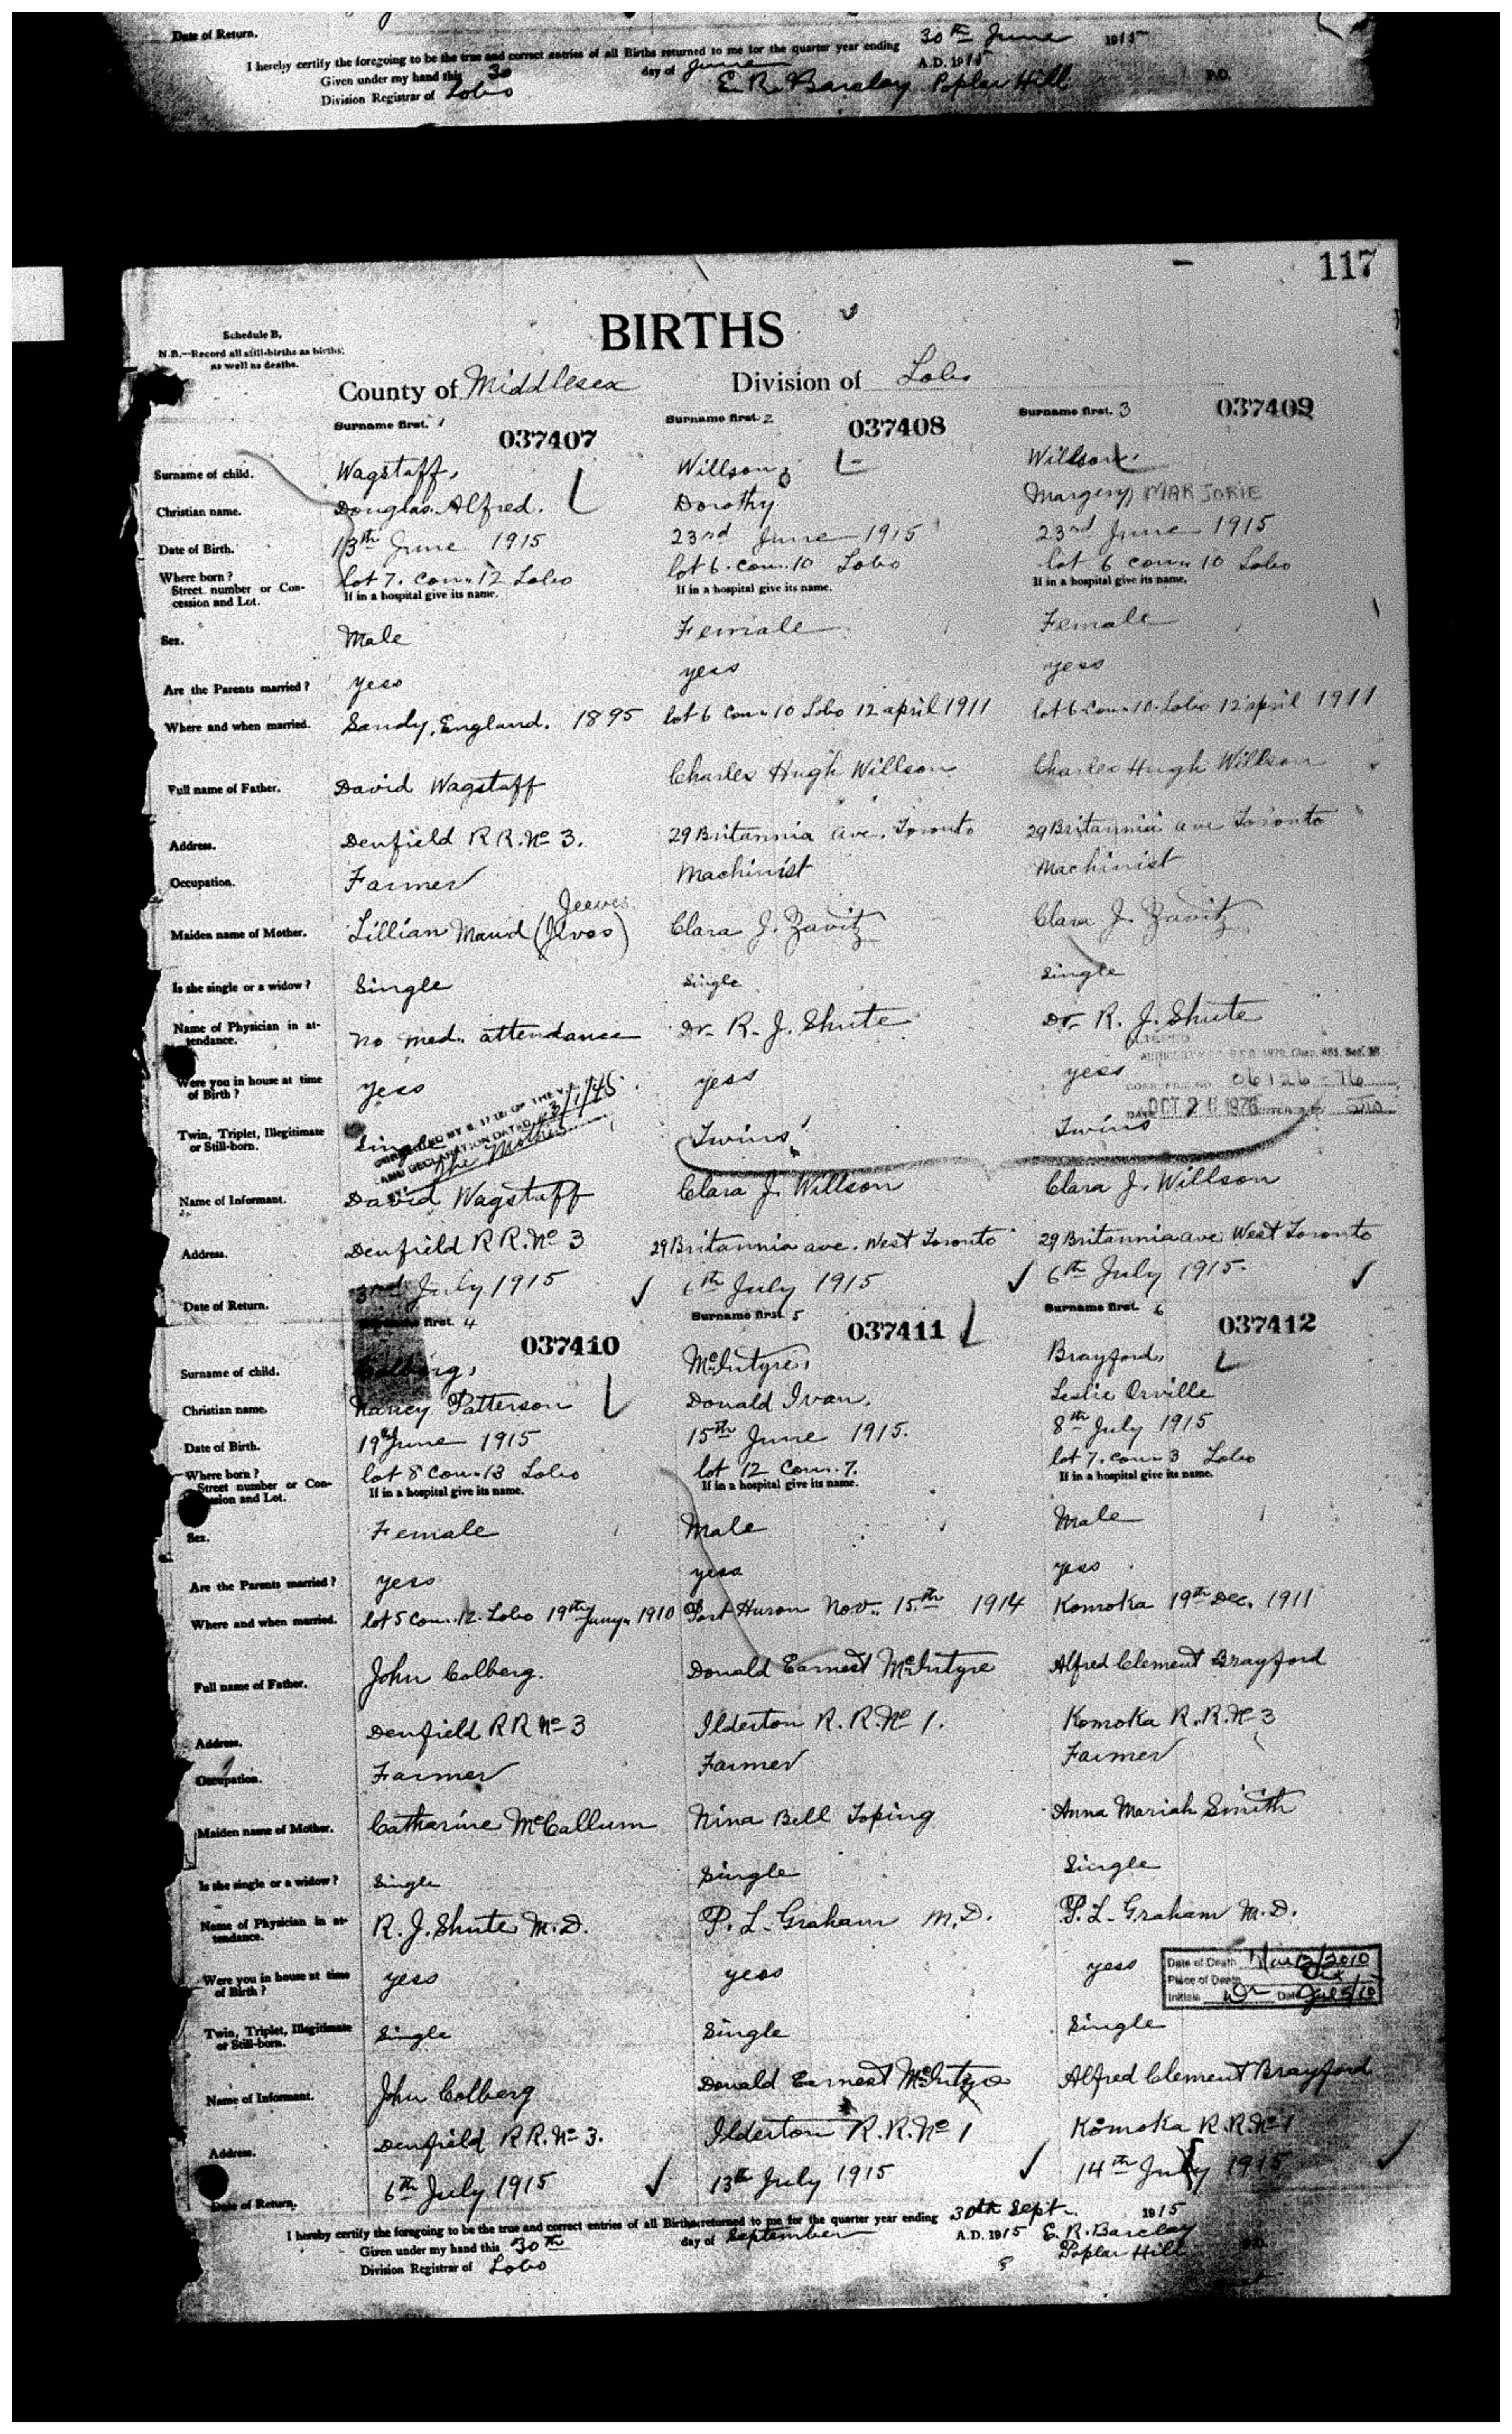 Date of Return.
I hereby certify the foregoing to be the true and correct entries of all Births returned to me for the quarter year ending 30th June 1915
Given under my hand this 30 day of June A.D. 1915
Division Registrar of Lobo E. R. Barclay Poplar Hill P.O.
117
BIRTHS
Schedule B.
N.B.—Record all still-births as births;
as well as deaths.
County of Middlesex Division of Lobo
Surname first. 1 037407 Surname first. 2 037408 Surname first. 3 037409
Surname of child. Wagstaff, Willson, Willson,
Christian name. Douglas Alfred. Dorothy Margery, MARJORIE
Date of Birth. 13th June 1915 23rd June 1915 23rd June 1915
Where born? Street number or Concession and Lot. lot 7. con. 12 Lobo lot 6. con. 10 Lobo lot 6 con. 10 Lobo
If in a hospital give its name. If in a hospital give its name. If in a hospital give its name.
Sex. Male Female Female
Are the Parents married? yes yes yes
Where and when married. Sandy, England. 1895 lot 6 con. 10 Lobo 12 april 1911 lot 6 con. 10. Lobo 12 april 1911
Full name of Father. David Wagstaff Charles Hugh Willson Charles Hugh Willson
Address. Denfield R R. No 3. 29 Britannia ave. Toronto 29 Britannia ave Toronto
Occupation. Farmer Machinist Machinist
Jeeves
Maiden name of Mother. Lillian Maud (Jlvos) Clara J. Zavitz Clara J. Zavitz
Is she single or a widow? Single Single Single
Name of Physician in attendance. No med. attendance Dr. R. J. Shute Dr. R. J. Shute
Were you in house at time of Birth? yes yes yes
06126-76
OCT 2 1976
Twin, Triplet, Illegitimate or Still-born. Single Twins Twins
AND DECLARATION DATED 3/1/45
BY The Mother
Name of Informant. David Wagstaff Clara J. Willson Clara J. Willson
Address. Denfield R R. No 3 29 Britannia ave. West Toronto 29 Britannia ave West Toronto
Date of Return. 3rd July 1915 6th July 1915 6th July 1915.
first. 4 037410 Surname first. 5 037411 Surname first. 6 037412
Surname of child. Colberg, McIntyre, Brayford,
Christian name. Nancy Patterson Donald Ivan, Leslie Orville
Date of Birth. 19th June 1915 15th June 1915. 8th July 1915
Where born? Street number or Concession and Lot. lot 8 con. 13 Lobo lot 12 con. 7. lot 7. con. 3 Lobo
If in a hospital give its name. If in a hospital give its name. If in a hospital give its name.
Sex. Female Male Male
Are the Parents married? yes yes yes
Where and when married. lot 5 con. 12. Lobo 19th Jany. 1910 Port Huron Nov. 15th 1914 Komoka 19th Dec. 1911
Full name of Father. John Colberg. Donald Earnest McIntyre Alfred Clement Brayford
Address. Denfield R R No 3 Ilderton R. R. No 1. Komoka R. R. No 3
Occupation. Farmer Farmer Farmer
Maiden name of Mother. Catharine McCallum Nina Bell Toping Anna Mariah Smith
Is she single or a widow? Single Single Single
Name of Physician in attendance. R. J. Shute M. D. P. L. Graham M. D. P. L. Graham M. D.
Were you in house at time of Birth? yes yes yes
Date of Death 2010
Place of Death
Initials Date
Twin, Triplet, Illegitimate or Still-born. Single Single Single
Name of Informant. John Colberg Donald Earnest McIntyre Alfred Clement Brayford
Address. Denfield R R. No 3. Ilderton R. R. No 1 Komoka R. R. No 1
Date of Return. 6th July 1915 13th July 1915 14th July 1915
I hereby certify the foregoing to be the true and correct entries of all Births returned to me for the quarter year ending 30th Sept. 1915
Given under my hand this 30th day of September A.D. 1915 E. R. Barclay
Division Registrar of Lobo Poplar Hill